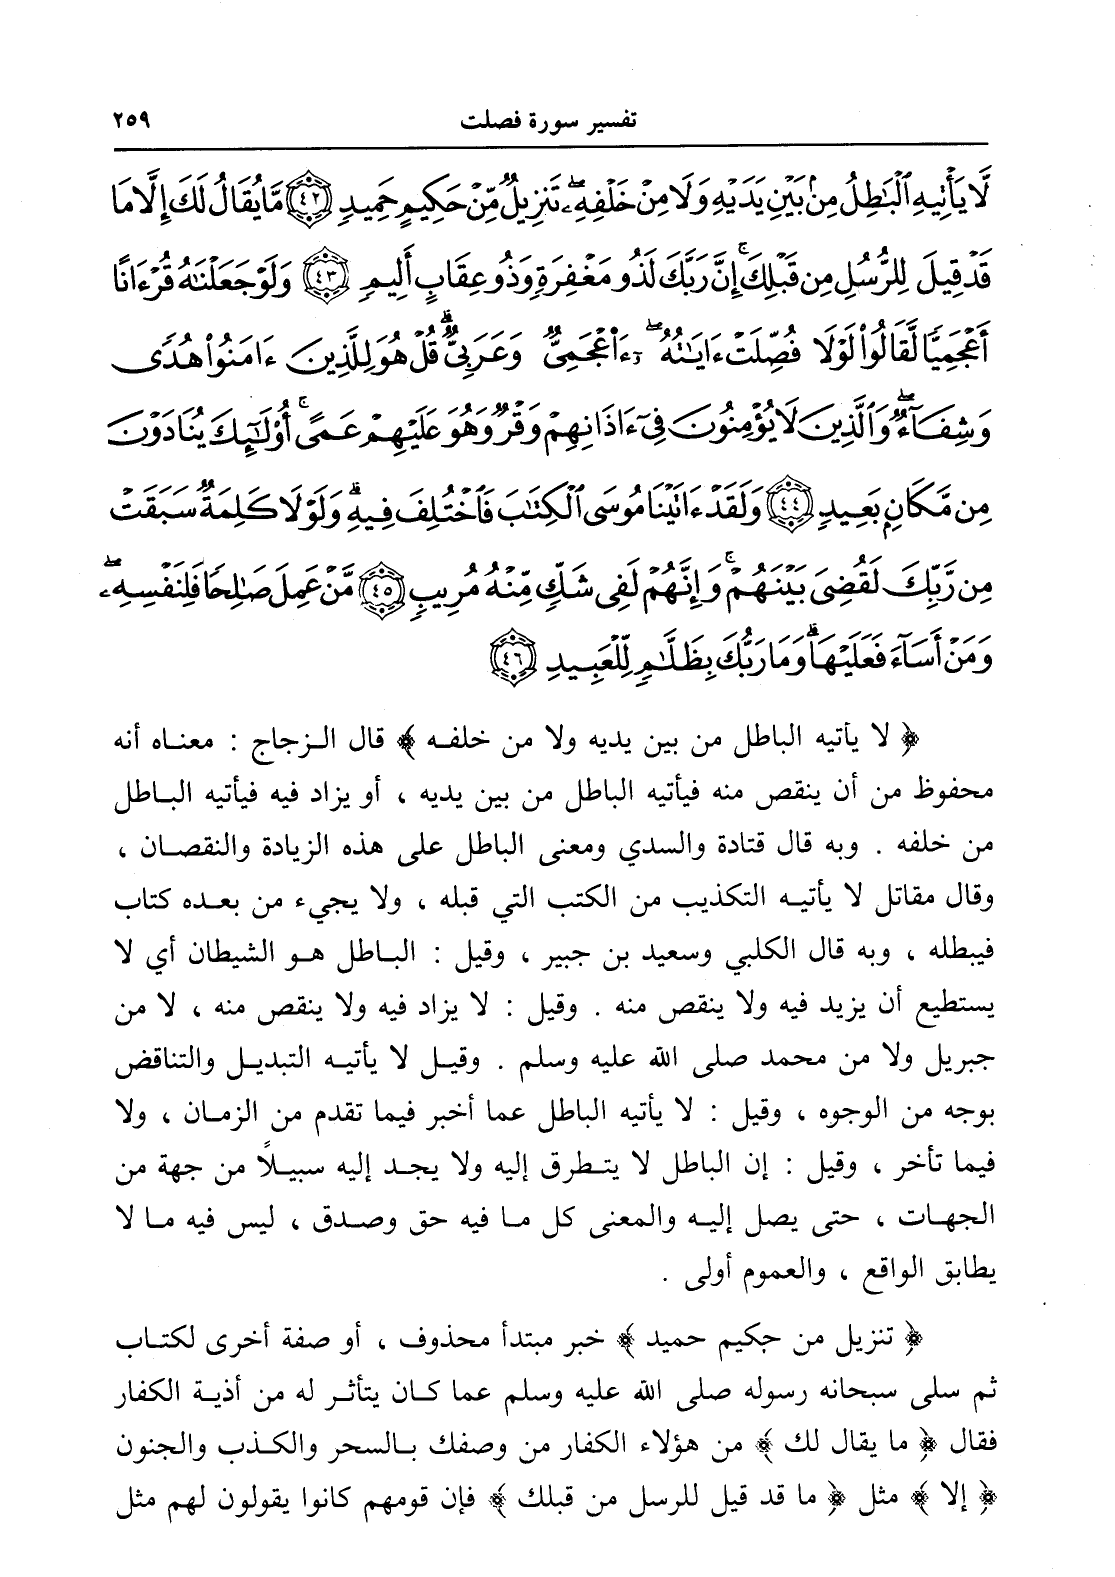 تفسير سورة فصلت ٢٥٩
لَّا يَأْتِيهِ ٱلْبَـٰطِلُ مِنۢ بَيْنِ يَدَيْهِ وَلَا مِنْ خَلْفِهِۦۖ تَنزِيلٌ مِّنْ حَكِيمٍ حَمِيدٍ ﴿٤٢﴾ مَّا يُقَالُ لَكَ إِلَّا مَا
قَدْ قِيلَ لِلرُّسُلِ مِن قَبْلِكَۚ إِنَّ رَبَّكَ لَذُو مَغْفِرَةٍ وَذُو عِقَابٍ أَلِيمٍ ﴿٤٣﴾ وَلَوْ جَعَلْنَـٰهُ قُرْءَانًا
أَعْجَمِيًّا لَّقَالُوا۟ لَوْلَا فُصِّلَتْ ءَايَـٰتُهُۥٓۖ ءَا۬عْجَمِىٌّ وَعَرَبِىٌّۗ قُلْ هُوَ لِلَّذِينَ ءَامَنُوا۟ هُدًى
وَشِفَآءٌۖ وَٱلَّذِينَ لَا يُؤْمِنُونَ فِىٓ ءَاذَانِهِمْ وَقْرٌ وَهُوَ عَلَيْهِمْ عَمًىۚ أُو۟لَـٰٓئِكَ يُنَادَوْنَ
مِن مَّكَانٍۭ بَعِيدٍ ﴿٤٤﴾ وَلَقَدْ ءَاتَيْنَا مُوسَى ٱلْكِتَـٰبَ فَٱخْتُلِفَ فِيهِۗ وَلَوْلَا كَلِمَةٌ سَبَقَتْ
مِن رَّبِّكَ لَقُضِىَ بَيْنَهُمْۚ وَإِنَّهُمْ لَفِى شَكٍّ مِّنْهُ مُرِيبٍ ﴿٤٥﴾ مَّنْ عَمِلَ صَـٰلِحًا فَلِنَفْسِهِۦۖ
وَمَنْ أَسَآءَ فَعَلَيْهَاۗ وَمَا رَبُّكَ بِظَلَّـٰمٍ لِّلْعَبِيدِ ﴿٤٦﴾
﴿ لا يأتيه الباطل من بين يديه ولا من خلفه ﴾ قال الزجاج : معناه أنه
محفوظ من أن ينقص منه فيأتيه الباطل من بين يديه ، أو يزاد فيه فيأتيه الباطل
من خلفه . وبه قال قتادة والسدي ومعنى الباطل على هذه الزيادة والنقصان ،
وقال مقاتل لا يأتيه التكذيب من الكتب التي قبله ، ولا يجيء من بعده كتاب
فيبطله ، وبه قال الكلبي وسعيد بن جبير ، وقيل : الباطل هو الشيطان أي لا
يستطيع أن يزيد فيه ولا ينقص منه . وقيل : لا يزاد فيه ولا ينقص منه ، لا من
جبريل ولا من محمد صلى الله عليه وسلم . وقيل لا يأتيه التبديل والتناقض
بوجه من الوجوه ، وقيل : لا يأتيه الباطل عما أخبر فيما تقدم من الزمان ، ولا
فيما تأخر ، وقيل : إن الباطل لا يتطرق إليه ولا يجد إليه سبيلاً من جهة من
الجهات ، حتى يصل إليه والمعنى كل ما فيه حق وصدق ، ليس فيه ما لا
يطابق الواقع ، والعموم أولى .
﴿ تنزيل من حكيم حميد ﴾ خبر مبتدأ محذوف ، أو صفة أخرى لكتاب
ثم سلى سبحانه رسوله صلى الله عليه وسلم عما كان يتأثر له من أذية الكفار
فقال ﴿ ما يقال لك ﴾ من هؤلاء الكفار من وصفك بالسحر والكذب والجنون
﴿ إلا ﴾ مثل ﴿ ما قد قيل للرسل من قبلك ﴾ فإن قومهم كانوا يقولون لهم مثل